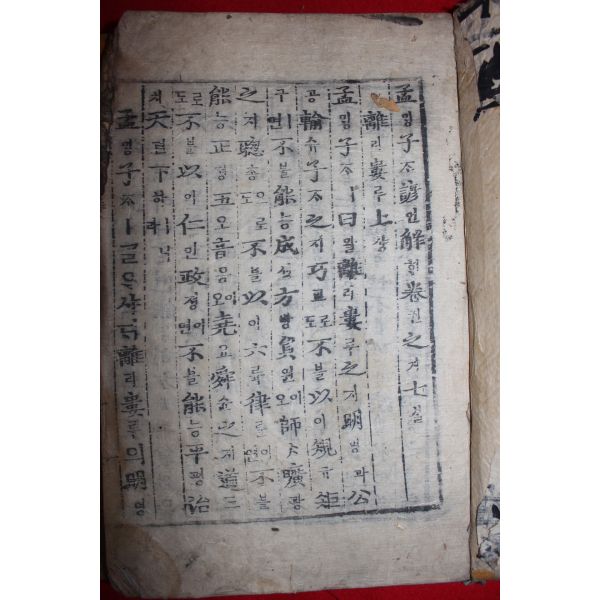 孟ᄆᆡᆼ子ᄌᆞ諺언解ᄒᆡ卷권之지七칠
離리婁루上샹
孟ᄆᆡᆼ子ᄌᆞㅣ曰왈離리婁루之지明명과公
공輸슈子ᄌᆞ之지巧교로도不블以이規규矩
구ㅣ면不블能능成셩方방員원이오師ᄉᆞ曠광
之지聰총으로도不블以이六륙律률이면不블
能능正졍五오音음이오堯요舜슌之지道도
로도不블以이仁인政졍이면不블能능平평治
치天텬下하ㅣ니라
孟ᄆᆡᆼ子ᄌᆞㅣᄀᆞᆯᄋᆞ샤ᄃᆡ離리婁루의明명